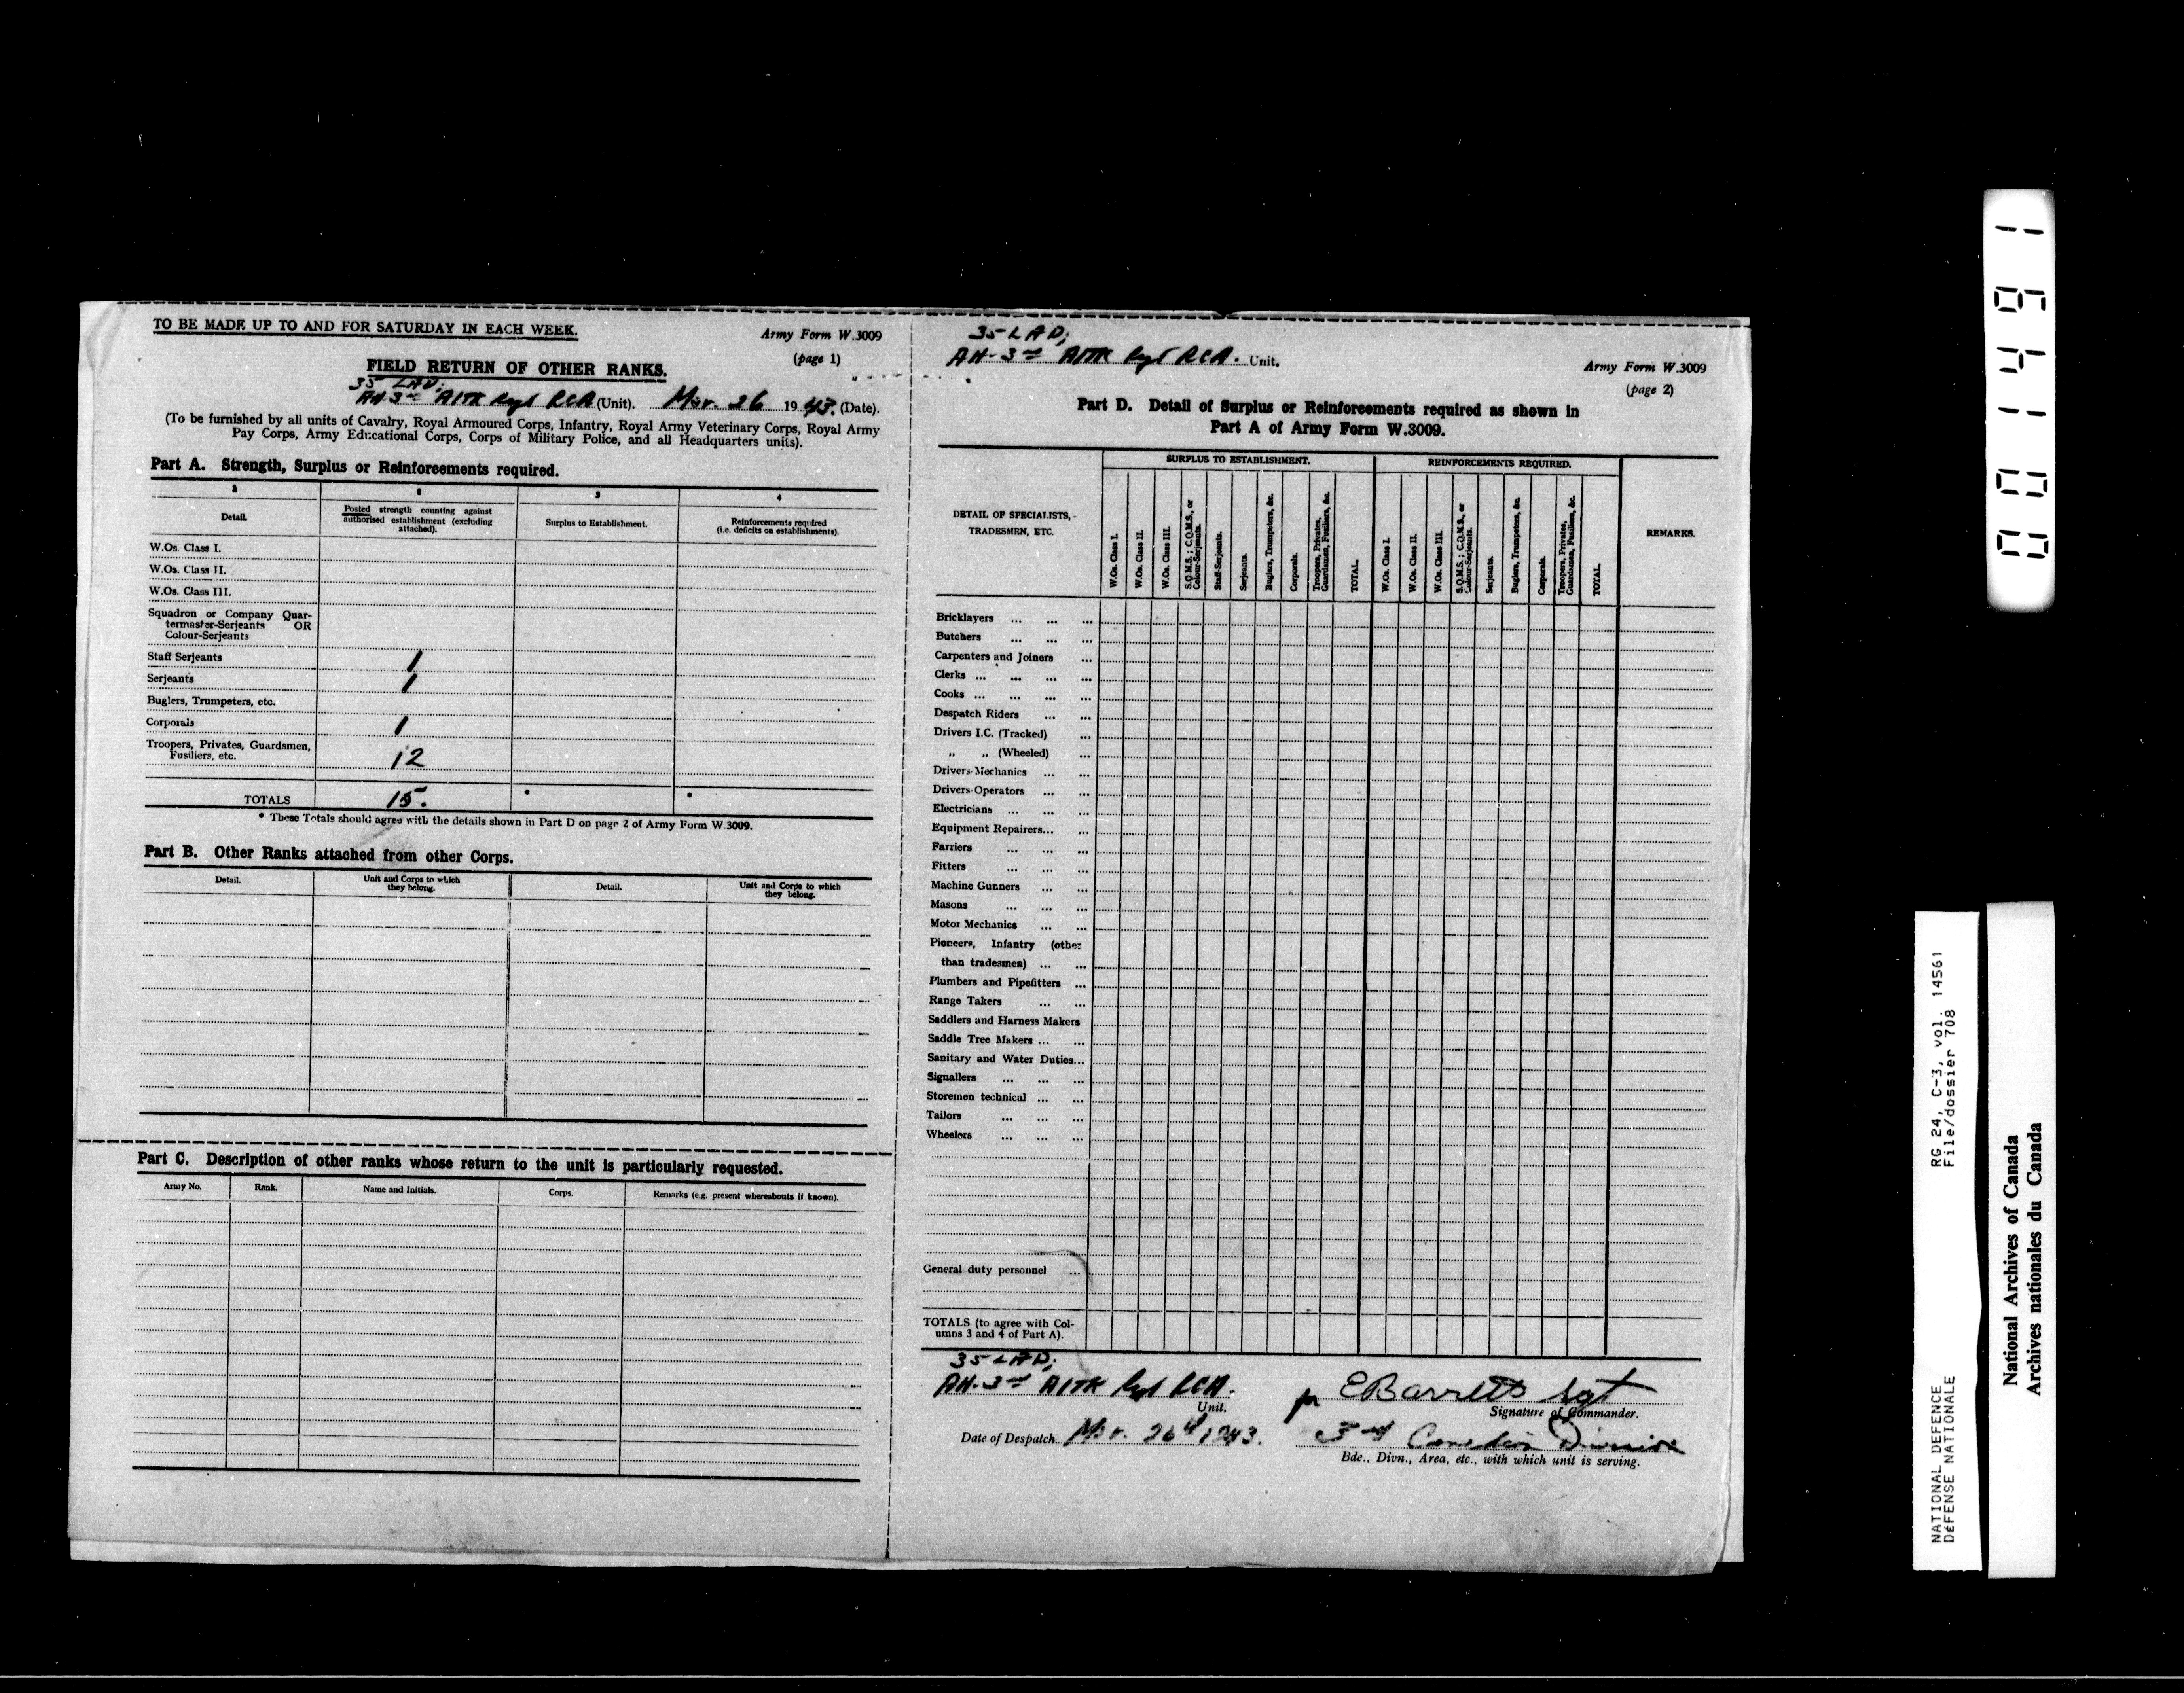 TO BE MADE UP TO AND FOR SATURDAY IN EACH WEEK.
Army Form W.3009
(page 1)
FIELD RETURN OF OTHER RANKS.
35 LAD;
Att-3rd A/TK Regt RCA (Unit). Mar. 26 1943. (Date).
(To be furnished by all units of Cavalry, Royal Armoured Corps, Infantry, Royal Army Veterinary Corps, Royal Army
Pay Corps, Army Educational Corps, Corps of Military Police, and all Headquarters units).
Part A. Strength, Surplus or Reinforcements required.
1 2 3 4
Detail.
Posted strength counting against
authorised establishment (excluding
attached).
Surplus to Establishment.
Reinforcements required
(i.e. deficits on establishments).
W.Os. Class I.
W.Os. Class II.
W.Os. Class III.
Squadron or Company Quar-
termaster-Serjeants OR
Colour-Serjeants
Staff Serjeants 1
Serjeants 1
Buglers, Trumpeters, etc.
Corporals 1
Troopers, Privates, Guardsmen,
Fusiliers, etc. 12
TOTALS 15. * *
* These Totals should agree with the details shown in Part D on page 2 of Army Form W.3009.
Part B. Other Ranks attached from other Corps.
Detail.
Unit and Corps to which
they belong.
Detail.
Unit and Corps to which
they belong.
Part C. Description of other ranks whose return to the unit is particularly requested.
Army No. Rank. Name and Initials. Corps. Remarks (e.g. present whereabouts if known).
35 LAD;
Att-3rd A/TK Regt RCA. Unit.
Army Form W.3009
(page 2)
Part D. Detail of Surplus or Reinforcements required as shown in
Part A of Army Form W.3009.
DETAIL OF SPECIALISTS,
TRADESMEN, ETC.
SURPLUS TO ESTABLISHMENT.
W.Os. Class I.
W.Os. Class II.
W.Os. Class III.
S.Q.M.S.; C.Q.M.S., or
Colour-Serjeants.
Staff-Serjeants.
Serjeants.
Buglers, Trumpeters, &c.
Corporals.
Troopers, Privates,
Guardsmen, Fusiliers, &c.
TOTAL.
REINFORCEMENTS REQUIRED.
W.Os. Class I.
W.Os. Class II.
W.Os. Class III.
S.Q.M.S.; C.Q.M.S., or
Colour-Serjeants.
Serjeants.
Buglers, Trumpeters, &c.
Corporals.
Troopers, Privates,
Guardsmen, Fusiliers, &c.
TOTAL.
REMARKS.
Bricklayers ... ... ...
Butchers ... ... ...
Carpenters and Joiners ...
Clerks ... ... ... ...
Cooks ... ... ... ...
Despatch Riders ... ...
Drivers I.C. (Tracked) ...
„ „ (Wheeled) ...
Drivers-Mechanics ... ...
Drivers-Operators ... ...
Electricians ... ... ...
Equipment Repairers... ...
Farriers ... ... ...
Fitters ... ... ...
Machine Gunners ... ...
Masons ... ... ...
Motor Mechanics ... ...
Pioneers, Infantry (other
than tradesmen) ... ...
Plumbers and Pipefitters ...
Range Takers ... ...
Saddlers and Harness Makers
Saddle Tree Makers ... ...
Sanitary and Water Duties...
Signallers ... ... ...
Storemen technical ... ...
Tailors ... ... ...
Wheelers ... ... ...
General duty personnel ...
TOTALS (to agree with Col-
umns 3 and 4 of Part A).
35 LAD;
Att-3rd A/TK Regt RCA.
Unit.
for E Barrett Sgt
Signature of Commander.
Date of Despatch Mar. 26th, 1943.
3rd Canadian Division
Bde., Divn., Area, etc., with which unit is serving.
001491
RG 24, C-3, vol. 14561
File/dossier 708
NATIONAL DEFENCE
DÉFENSE NATIONALE
National Archives of Canada
Archives nationales du Canada